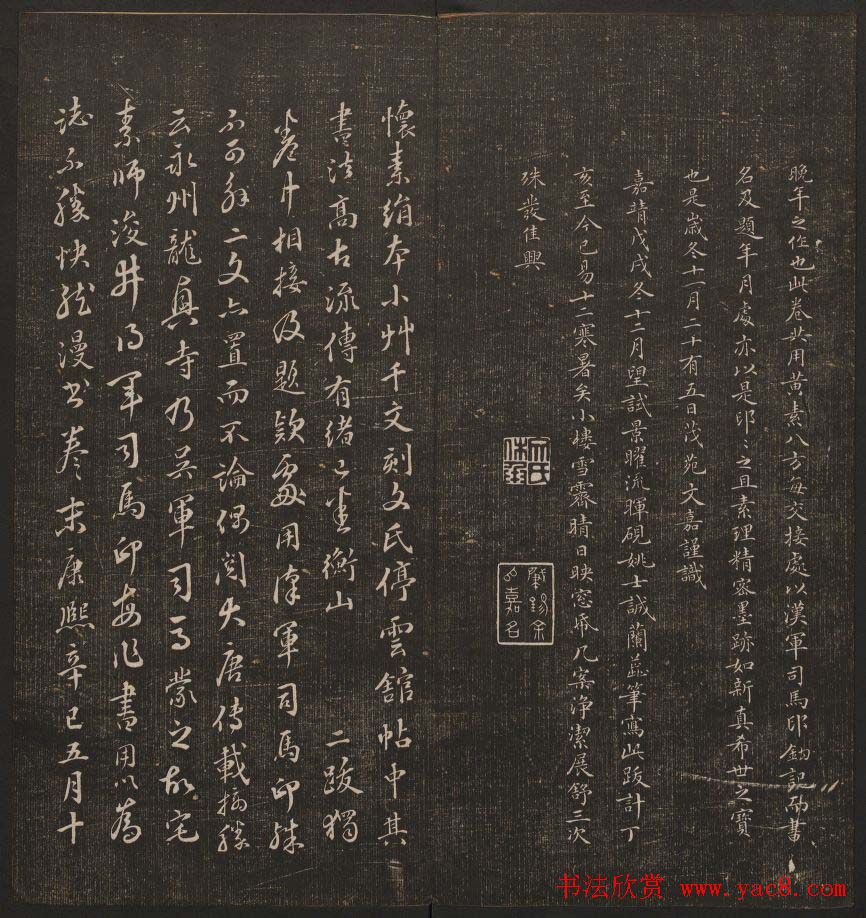 晚年之作也此卷共用黃素八方每交接處以漢軍司馬印鈐記而書
名及題年月處亦以是印〻之且素理精密墨跡如新真希世之寶
也是歲冬十一月二十有五日茂苑文嘉謹識
嘉靖戊戌冬十二月望試景曜流暉硯姚士誠蘭蕊筆寫此跋計丁
亥至今已易十二寒暑矣小樓雪霽晴日映窓疏几案淨潔展舒三次
殊發佳興
文氏休承
肇錫余以嘉名
懷素絹本小艸千文刻文氏停雲館帖中其
書法高古流傳有緒已在衡山二跋獨
卷中相接及題款處用漢軍司馬印殊
不可解二文亦置而不論偶閱大唐傳載
云永州龍興寺乃吳軍司馬蒙之故宅
素師浚井得軍司馬印每作書用以為
誌不勝快然漫書卷末康熙辛巳五月十
书法欣赏 www.yac8.com